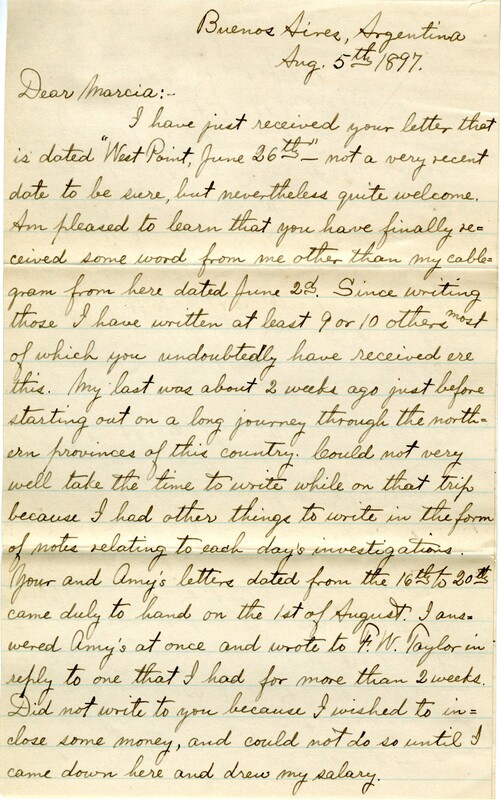 Buenos Aires, Argentina
Aug. 5th 1897.
Dear Marcia:-
I have just received your letter that
is dated "West Point, June 26th" - not a very recent
date to be sure, but nevertheless quite welcome.
Am pleased to learn that you have finally re=
ceived some word from me other than my cable=
gram from here dated June 2d. Since writing
those I have written at least 9 or 10 others most
of which you undoubtedly have received ere
this. My last was about 2 weeks ago just before
starting out on a long journey through the north=
ern provinces of this country. Could not very
well take the time to write while on that trip
because I had other things to write in the form
of notes relating to each day's investigations.
Your and Amy's letters dated from the 16th to 20th
came duly to hand on the 1st of August. I ans=
wered Amy's at once and wrote to F. W. Taylor in
reply to one that I had for more than 2 weeks.
Did not write to you because I wished to in=
close some money, and could not do so until I
came down here and drew my salary.